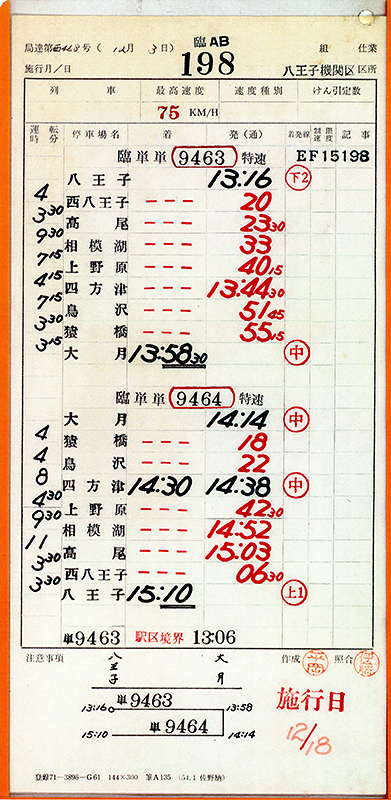 局達第西428号 (12月 3日) 臨AB 組 仕業
施行月/日 198 八王子機関区 区所
列 車 最高速度 速度種別 けん引定数
75 KM/H
運転時分 停車場名 着 発(通) 着発線 制限速度 記事
臨単単 9463 特速 EF15198
八王子 13:16 下2
4 西八王子 --- 20
3 30 高尾 --- 23 30
9 30 相模湖 --- 33
7 15 上野原 --- 40 15
4 15 四方津 --- 13:44 30
7 15 鳥沢 --- 51 45
3 30 猿橋 --- 55 15
3 15 大月 13:58 30 中
臨単単 9464 特速
大月 14:14 中
4 猿橋 --- 18
4 鳥沢 --- 22
8 四方津 14:30 14:38 中
4 30 上野原 --- 42 30
9 30 相模湖 --- 14:52
11 高尾 --- 15:03
3 30 西八王子 --- 06 30
3 30 八王子 15:10 上1
単9463 駅区境界 13:06
注意事項 八王子 大月 作成 平岡 照合
単9463
13:16 13:58
単9464
15:10 14:14
施行日
12/18
登録71-3895-G61 144×300 筆A135 (54.1 佐野納)